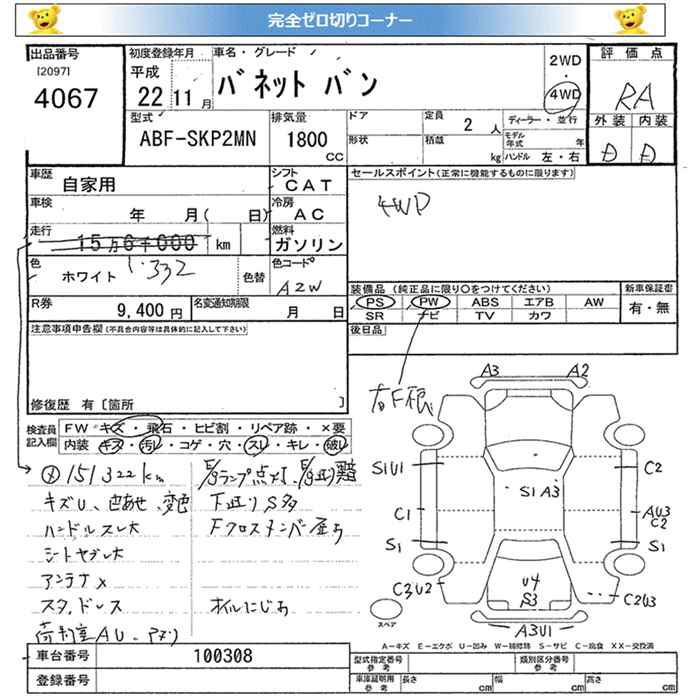 完全ゼロ切りコーナー
出品番号
[2097]
4067
初度登録年月
平成
22 11 月
車名・グレード
バネット バン
2WD
・
4WD
評価点
RA
外装 内装
D D
型式
ABF-SKP2MN
排気量
1800
CC
ドア
形状
定員
2 人
積載
kg
ディーラー・並行
モデル年式 年
ハンドル 左・右
車歴
自家用
シフト
CAT
車検
年 月( 日)
冷房
AC
走行
15万6千000 km
燃料
ガソリン
色
ホワイト
色替
色コード
A2W
R券
9,400 円
名変通知期限
月 日
セールスポイント(正常に機能するものに限ります)
4WD
装備品 (純正品に限り○をつけてください)
新車保証書
PS PW ABS エアB AW
SR ナビ TV カワ
有・無
後日品
注意事項申告欄(不具合内容等は具体的に記入して下さい)
修復歴 有[箇所 ]
検査員記入欄
FW キズ・飛石・ヒビ割・リペア跡・×要
内装 キズ・汚レ・コゲ・穴・スレ・キレ・破レ
151322km
キズU、色あせ、変色
ハンドルスレ大
シートヤブレ大
アンテナ×
スタッドレス
下廻りS多
オイルにじみ
A3 A2
S1U1
C2
S1 A3
C1
AU3
C2
S1
S1
C3U2
U4
S3
C2U3
A3U1
スペア
A-キズ E-エクボ U-凹み W-補修跡 S-サビ C-腐食 XX-交換済
車台番号
100308
登録番号
型式指定番号
参考
類別区分番号
参考
車庫証明用
参考
長さ cm
幅 cm
高さ cm